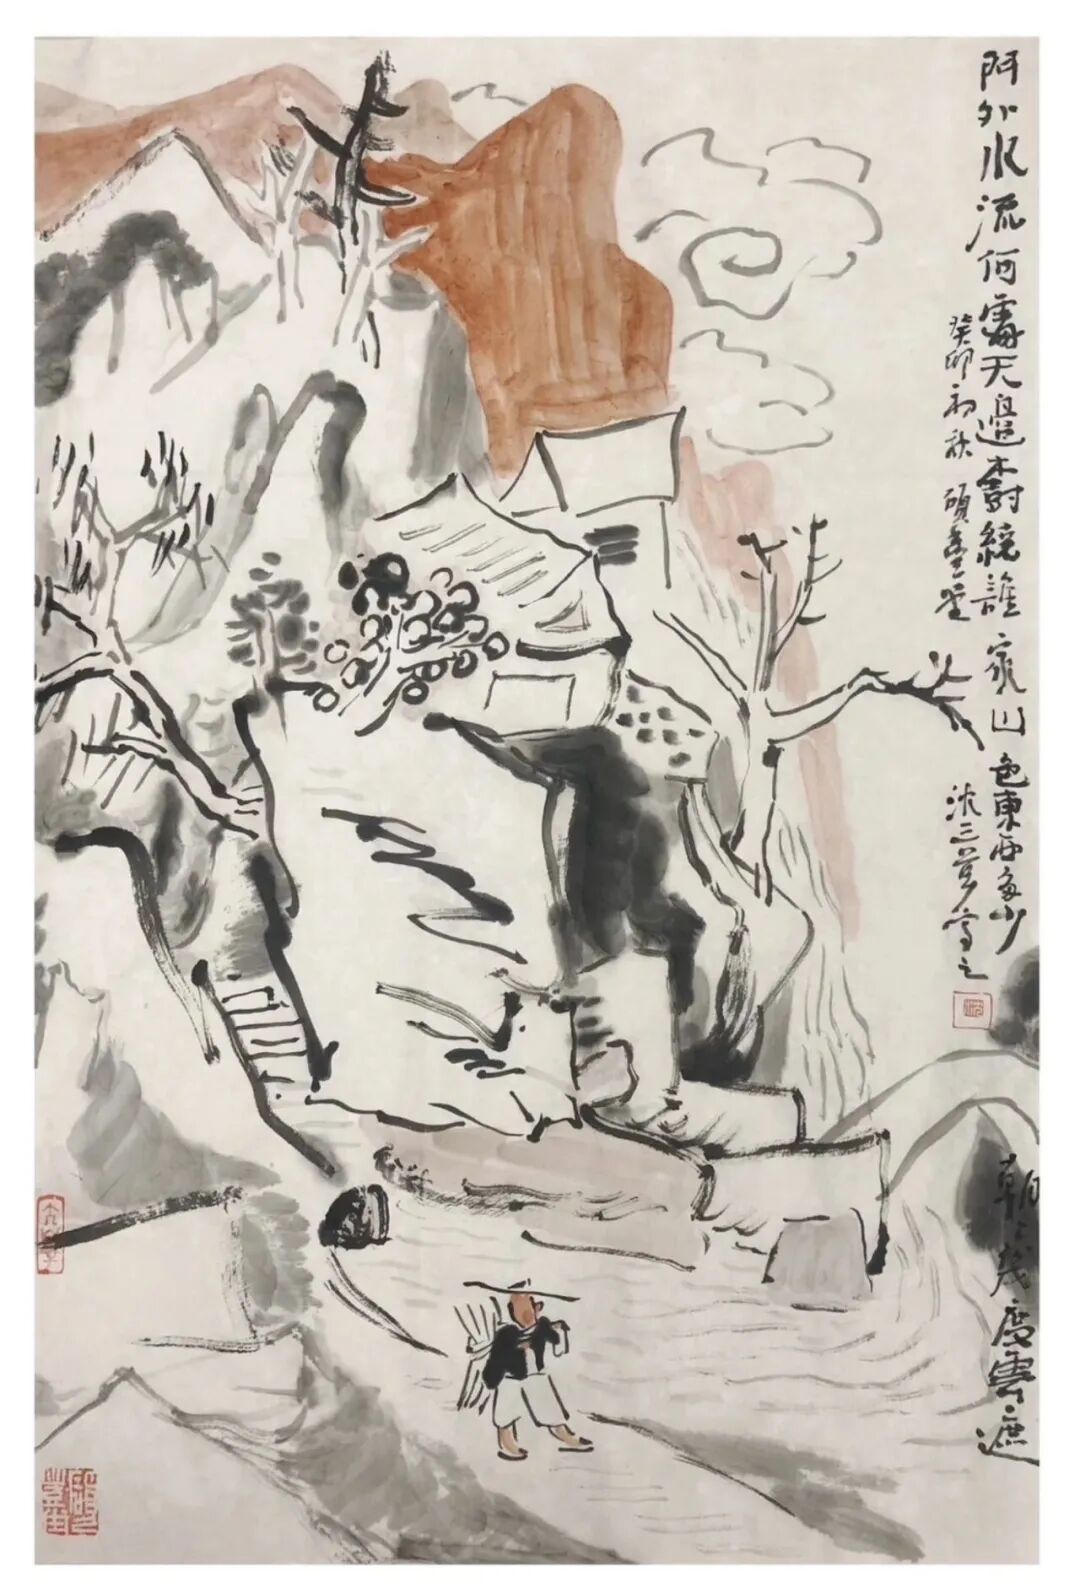 門外水流何處天邊樹繞誰家山色東西多少
朝〻幾度雲遮
癸卯初秋
沈三草寫之